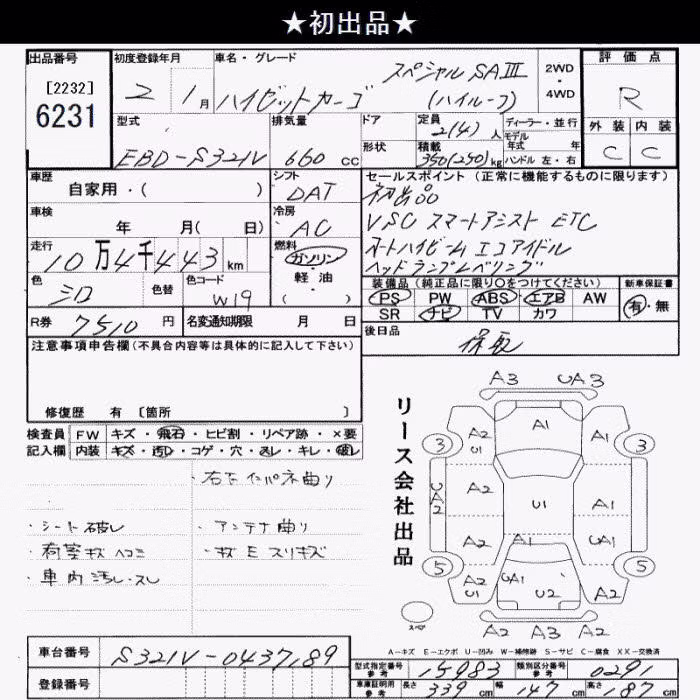 ★初出品★
出品番号 初度登録年月 車名・グレード 評価点
[2232]
6231
2 1月 ハイゼットカーゴ スペシャル SAⅢ (ハイルーフ) 2WD・4WD R
型式 排気量 ドア 定員 2(4)人 ディーラー・並行 外装 内装
EBD-S321V 660cc 形状 積載 350(250)kg モデル年式 年 ハンドル 左・右 C C
車歴 シフト セールスポイント (正常に機能するものに限ります)
自家用・( ) DAT 初出品
車検 冷房 VSC スマートアシスト ETC
年 月( 日) AC オートハイビーム エコアイドル
走行 燃料 ヘッドランプレベリング
10万4千443km ガソリン・軽油・( )
装備品 (純正品に限り○をつけてください) 新車保証書
色 色替 色コード PS PW ABS エアB AW 有・無
シロ W19 SR ナビ TV カワ
R券 7510円 名変通知期限 月 日 後日品
保取
注意事項申告欄 (不具合内容等は具体的に記入して下さい)
修復歴 有 〔箇所 〕
検査員記入欄 FW キズ・飛石・ヒビ割・リペア跡・×要
内装 キズ・汚レ・コゲ・穴・スレ・キレ・破レ
・右下インパネ曲り
・シート破レ ・アンテナ曲り
・荷室キズ ヘコミ ・キズ E スリキズ
・車内汚レ・スレ
リース会社出品
A3 UA3
3 A2 U1 A1 A1 3
UA2 A2 U1 A1
A2 A1 UA1
5 A2 U1 UA1 U2 A2 5
スペア A2 A3 A2
A-キズ E-エクボ U-凹み W-補修跡 S-サビ C-腐食 XX-交換済
車台番号 S321V-0437189
登録番号
型式指定番号 参考 15983 類別区分番号 参考 0291
車庫証明用 参考 長さ 339cm 幅 147cm 高さ 187cm